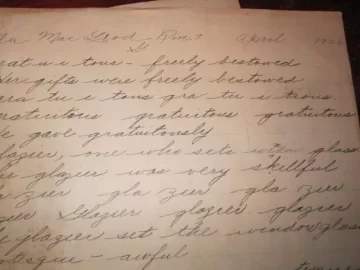 Mac Leod - Rm 7 April
grat u i tous - freely bestowed
Her gifts were freely bestowed
gra tu i tous gra tu i tous
gratuitous gratuitous gratuitous
He gave gratuitously
glazier, one who sets window glass
The glazier was very skillful
gla zier gla zier gla zier
glazier Glazier glazier glazier
glazier set the window glass
- awful